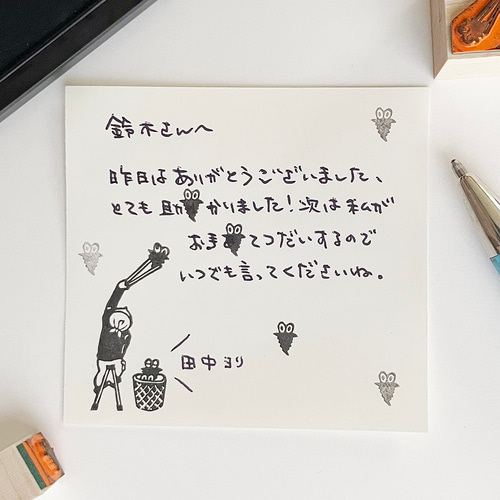 鈴木さんへ
昨日はありがとうございました、
とても助かりました!次は私が
お手てつだいするので
いつでも言ってくださいね。
田中より